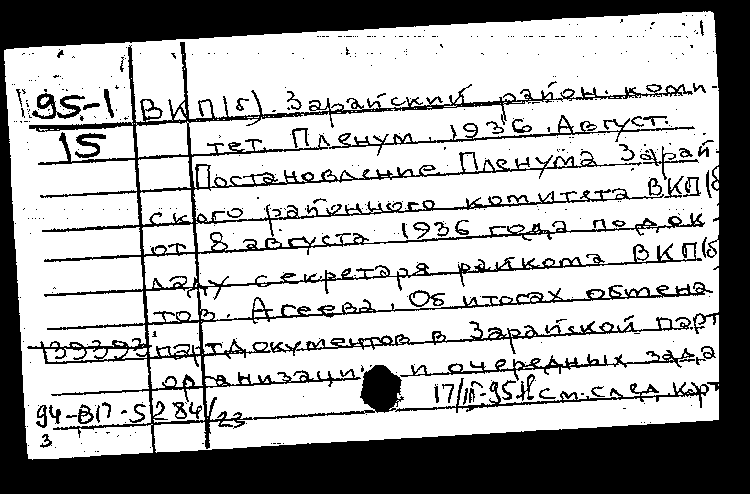 95-1 ВКП(б). Зарайский район. коми-
15 тет. Пленум. 1936. Август.
Постановление Пленума Зарай-
ского районного комитета ВКП(б
от 8 августа 1936 года по док-
ладу секретаря райкома ВКП(б
тов. Агеева. Об итогах обмена
139393 партдокументов в Зарайской парт
организации и очередных зада
17/III-95 см. след карт
94-ВП-5284/23
3